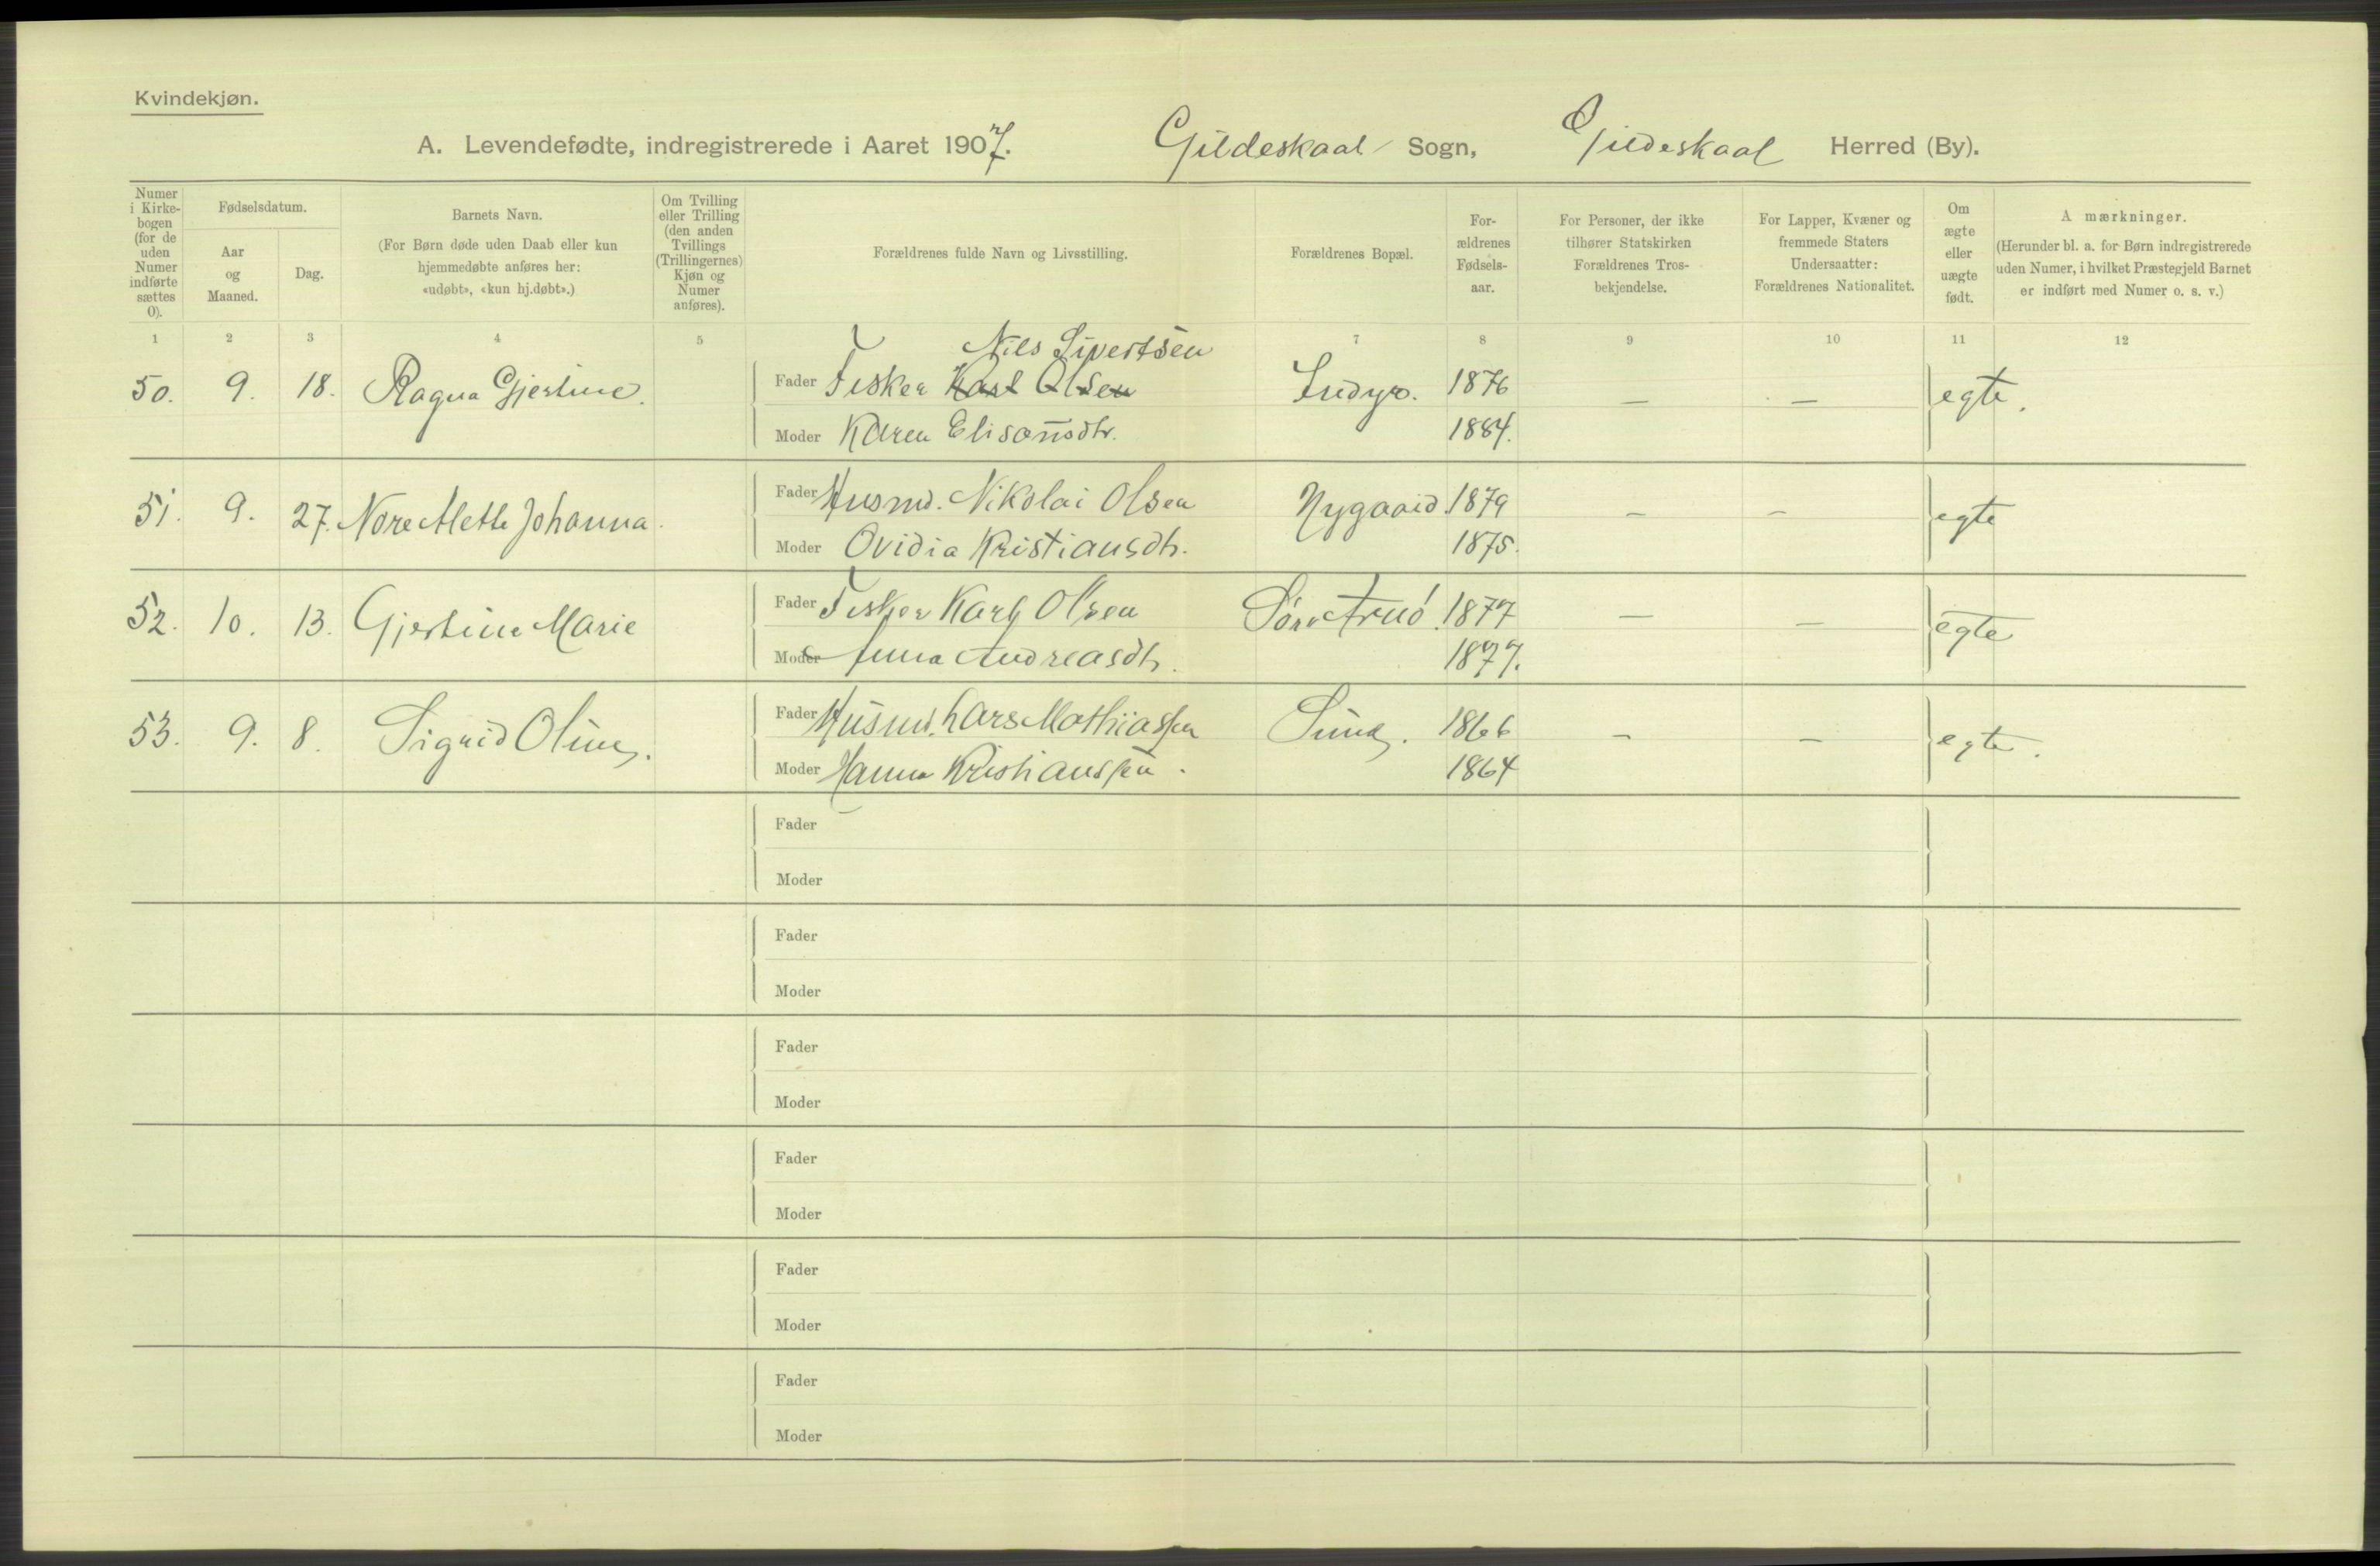 Kvindekjøn.
A. Levendefødte, indregistrerede i Aaret 1907. Gildeskaal Sogn, Gildeskaal Herred (By).
Numer i Kirke-bogen (for de uden Numer indførte sættes 0).
Fødselsdatum.
Aar og Maaned.
Dag.
Barnets Navn.
(For Børn døde uden Daab eller kun hjemmedøbte anføres her: «udøbt», «kun hj.døbt».)
Om Tvilling eller Trilling (den anden Tvillings (Trillingernes) Kjøn og Numer anføres).
Forældrenes fulde Navn og Livsstilling.
Forældrenes Bopæl.
For-ældrenes Fødsels-aar.
For Personer, der ikke tilhører Statskirken Forældrenes Tros-bekjendelse.
For Lapper, Kvæner og fremmede Staters Undersaatter: Forældrenes Nationalitet.
Om ægte eller uægte født.
A mærkninger.
(Herunder bl. a. for Børn indregistrerede uden Numer, i hvilket Præstegjeld Barnet er indført med Numer o. s. v.)
1 2 3 4 5 7 8 9 10 11 12
Nils Sivertsen
50. 9. 18. Ragna Gjertine. Fader Fisker Karl Olsen Indyr. 1876 — — egte.
Moder Karen Elisansdtr. 1884.
51. 9. 27. Nore Alette Johanna. Fader Husmd. Nikolai Olsen Nygaard. 1879 — — egte
Moder Ovidia Kristiansdtr. 1875.
52. 10. 13. Gjertine Marie Fader Fisker Karl Olsen Sørarnö. 1877 — — egte
Moder Anna Andreasdtr. 1877.
53. 9. 8. Sigrid Oline. Fader Husmd. Lars Mathiassen Sund. 1866 — — egte.
Moder Hanna Kristianssen. 1864
Fader
Moder
Fader
Moder
Fader
Moder
Fader
Moder
Fader
Moder
Fader
Moder